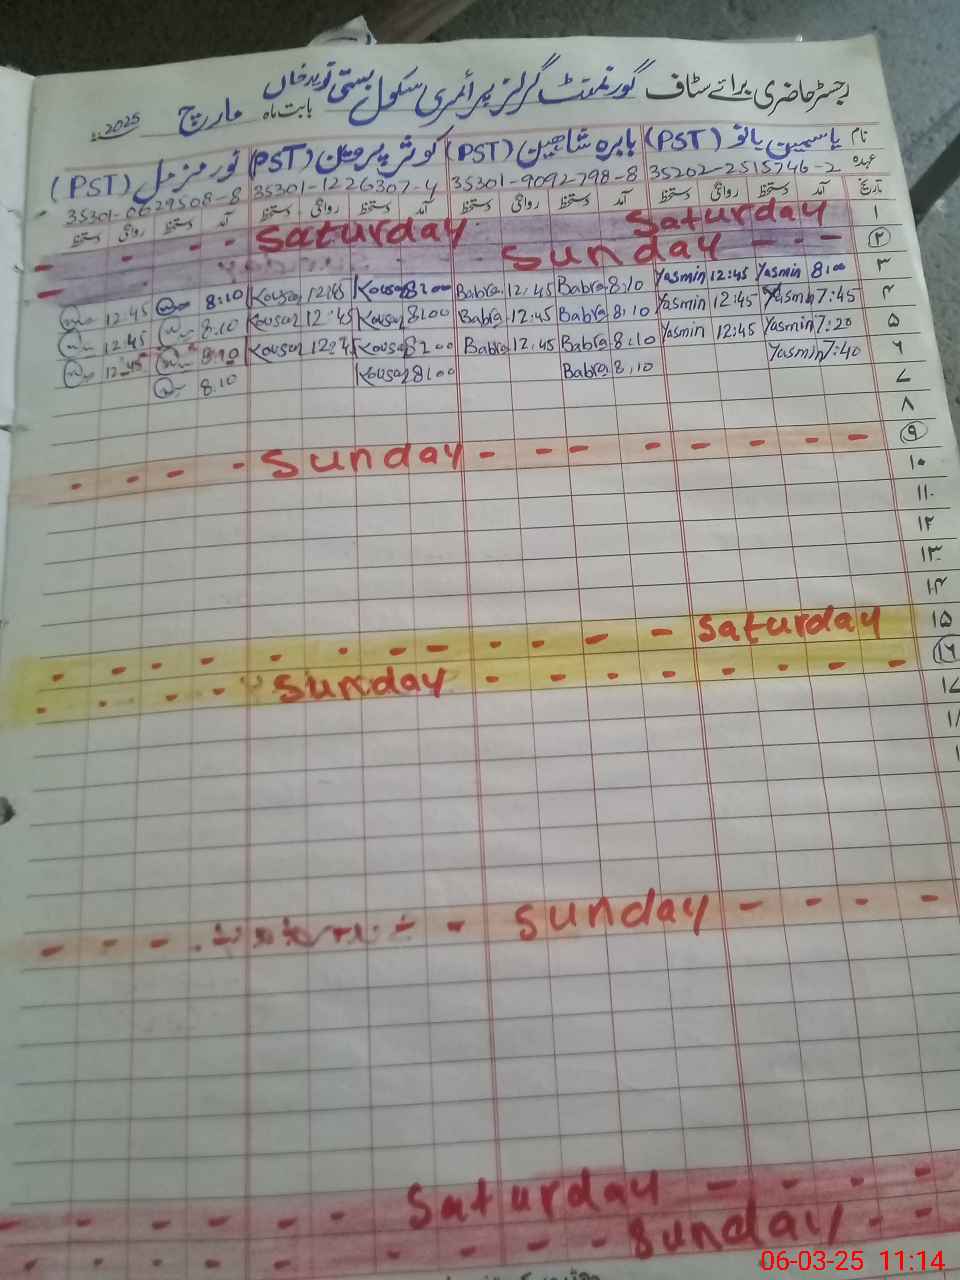 رجسٹر حاضری برائے سٹاف گورنمنٹ گرلز پرائمری سکول بستی نوید خاں بابت ماہ مارچ 2025
نام یاسمین بانو (PST) بابرہ شاھین (PST) کوثر پروین (PST) نور مزمل (PST)
عہدہ 35202-2515746-2 35301-9092798-8 35301-1226307-4 35301-0629508-8
تاریخ آمد دستخط روانگی دستخط آمد دستخط روانگی دستخط آمد دستخط روانگی دستخط آمد دستخط روانگی دستخط
۱ Saturday Saturday
۲ Sunday
۳ 8:00 Yasmin 12:45 Yasmin 8:10 Babra 12:45 Babra 8:00 Kousar 12:45 Kousar 8:10 12:45
۴ 7:45 Yasmin 12:45 Yasmin 8:10 Babra 12:45 Babra 8:00 Kousar 12:45 Kousar 8:10 12:45
۵ 7:20 Yasmin 12:45 Yasmin 8:10 Babra 12:45 Babra 8:00 Kousar 12:45 Kousar 8:10 12:45
۶ 7:40 Yasmin 8:10 Babra 8:00 Kousar 8:10
۷
۸
۹ Sunday
۱۰
۱۱
۱۲
۱۳
۱۴
۱۵ Saturday
۱۶ Sunday
۱۷
Sunday
Saturday
Sunday
06-03-25 11:14